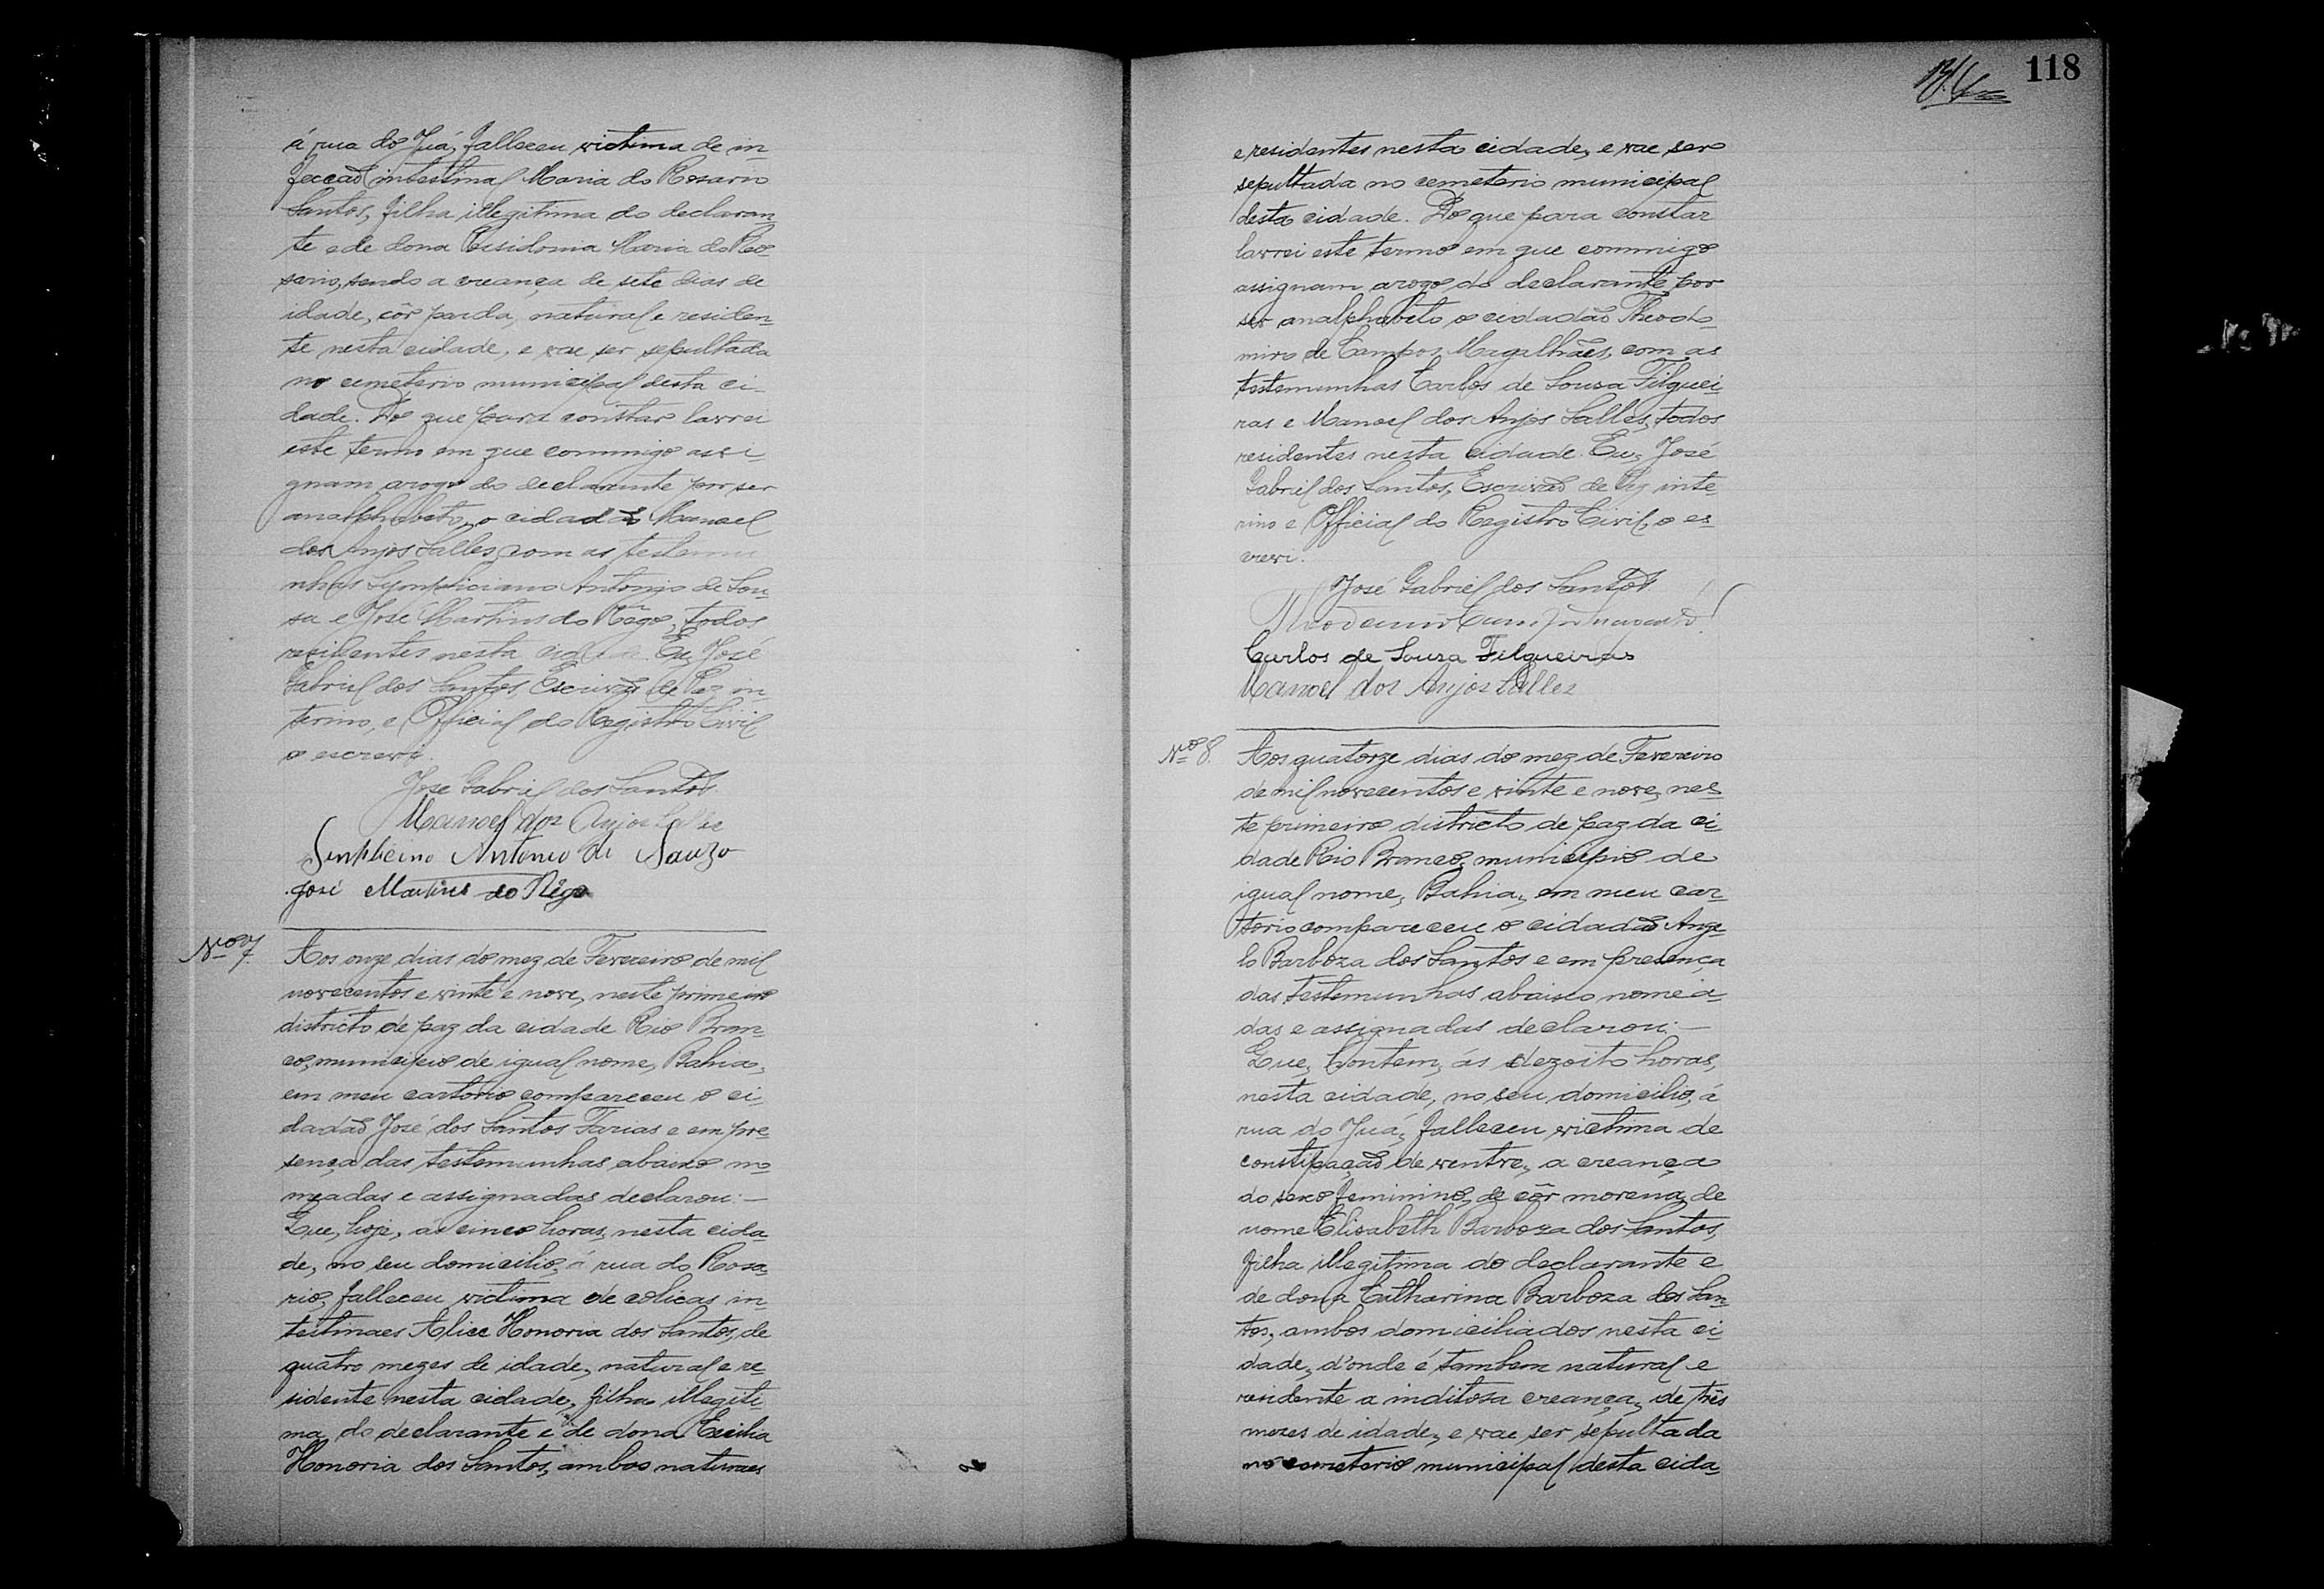 á rua do Juá, falleceu victima de in-
fecção intestinal Maria do Rosario
Santos, filha illegitima do declaran-
te e de dona Maria do Ro-
sario, sendo a creança de sete dias de
idade, côr parda, natural e residen-
te nesta cidade, e vae ser sepultada
no cemeterio municipal desta ci-
dade. Do que para constar lavrei
este termo em que commigo assi-
gnam arogo do declarante por ser
analphabeto, o cidadão Manoel
dos Anjos Salles, com as testemu
nhas Sympliciano Antonio de Sou-
sa e José Martins do Rêgo, todos
residentes nesta cidade. Eu, José
Gabriel dos Santos, Escrivão de Paz in-
terino, e Official do Registro Civil
o escrevi.
José Gabriel dos Santos
Manoel dos Anjos Salles
Antonio de Souza
José Martins do Rêgo
Nº 7. Aos onze dias do mez de Fevereiro de mil
novecentos e vinte e nove, neste primeiro
districto de paz da cidade Rio Bran-
co, municipio de igual nome, Bahia,
em meu cartorio compareceu o ci-
dadão José dos Santos Farias e em pre-
sença das testemunhas abaixo no-
meadas e assignadas declarou:—
Que, hoje, ás cinco horas, nesta cida-
de, no seu domicilio, á rua do Rosa-
rio, falleceu victima de colicas in-
testinaes Alice Honoria dos Santos, de
quatro mezes de idade, natural e re-
sidente nesta cidade, filha illegiti-
ma do declarante e de dona Cecilia
Honoria dos Santos, ambos naturaes
118
e residentes nesta cidade, e vae ser
sepultada no cemeterio municipal
desta cidade. Do que para constar
lavrei este termo em que commigo
assignam arogo do declarante, por
ser analphabeto o cidadão Theodo-
miro de Campos Magalhães, com as
testemunhas Carlos de Sousa Filguei-
ras e Manoel dos Anjos Salles, todos
residentes nesta cidade. Eu, José
Gabriel dos Santos, Escrivão de Paz inte-
rino e Official do Registro Civil, o es-
crevi.
José Gabriel dos Santos
Carlos de Souza Filgueiras
Manoel dos Anjos Salles
Nº 8. Aos quatorze dias do mez de Fevereiro
de mil novecentos e vinte e nove, nes-
te primeiro districto de paz da ci-
dade Rio Branco, municipio de
igual nome, Bahia, em meu car-
torio compareceu o cidadão Ange-
lo Barboza dos Santos e em presença
das testemunhas abaixo nomea-
das e assignadas declarou:—
Que, hontem, ás dezoito horas,
nesta cidade, no seu domicilio, á
rua do Juá, falleceu victima de
constipação de ventre, a creança
do sexo feminino, de côr morena, de
nome Elisabeth Barboza dos Santos,
filha illegitima do declarante e
de dona Catharina Barboza dos San-
tos, ambos domiciliados nesta ci-
dade, d'onde é tambem natural e
residente a inditosa creança, de três
mezes de idade, e vae ser sepultada
no cemeterio municipal desta cida-